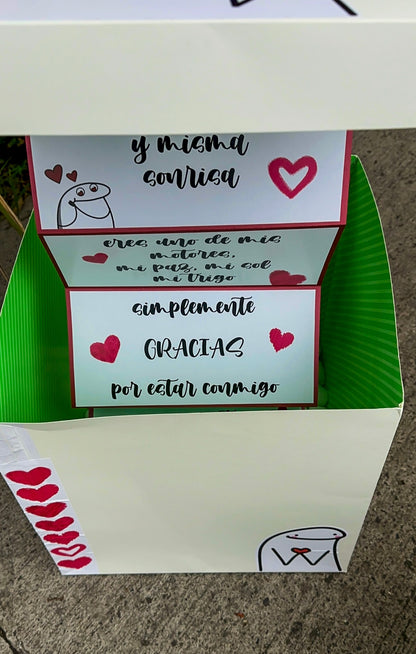 y misma
sonrisa
eres uno de mis
motores,
mi paz, mi sol
mi trigo
simplemente
GRACIAS
por estar conmigo